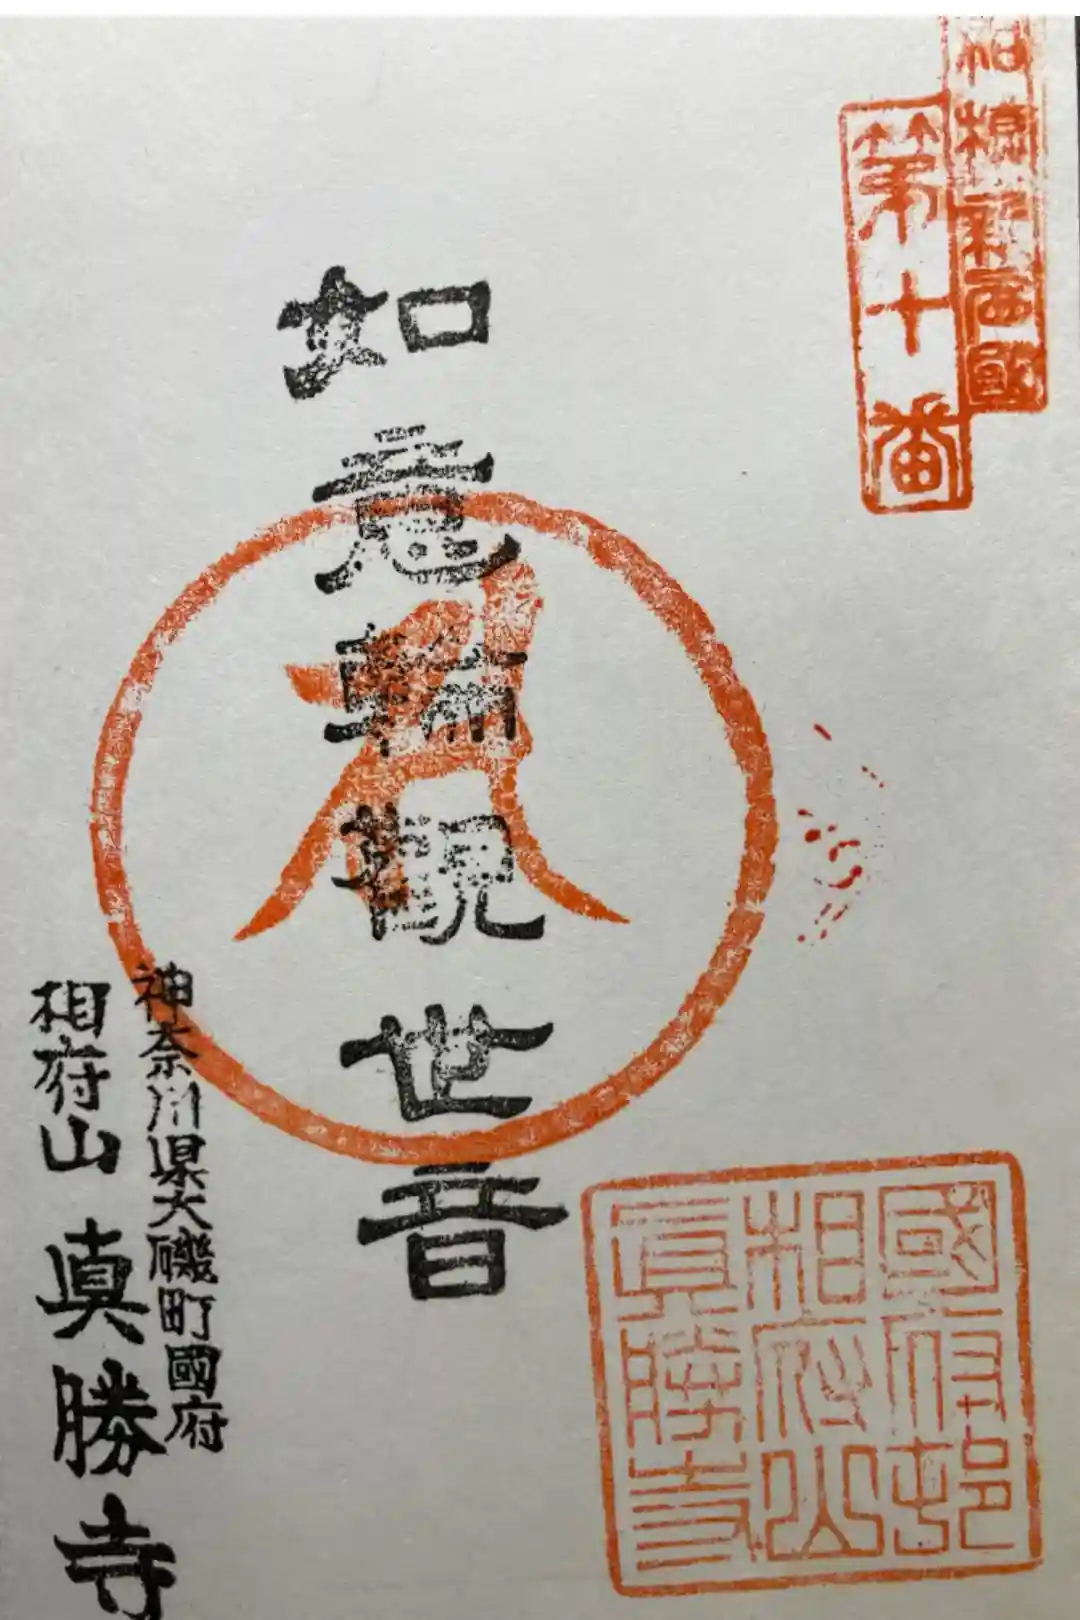 相模新西國
第十番
如意輪觀世音
神奈川県大磯町國府
相府山 真勝寺
國府邨
相府山
眞勝寺